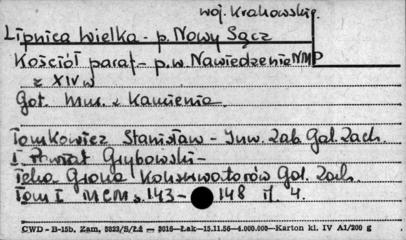 woj. Krakowskie.
Lipnica Wielka - p. Nowy Sącz
Kościół paraf. - p.w. Nawiedzenia NMP
z XIV w
Got. mur. z kamienia.
Tomkowicz Stanisław - Inw. Zab. Gal. Zach.
I. Powiat Grybowski -
Teka Grona Konserwatorów Gal. Zach.
Tom I MCM s. 143 - 148 il. 4.
CWD - B-15b. Zam, 5823/S/Łż — 3016—Łak—15.11.56—4.000.000—Karton kl. IV A1/200 g